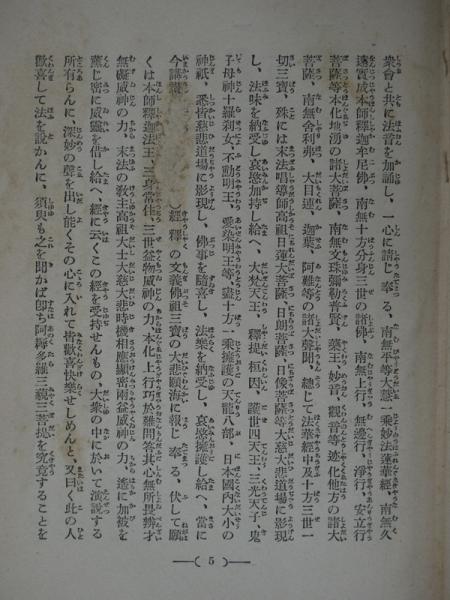 衆會と共に法音を加誦し、一心に請じ奉る、南無平等大慧一乘妙法蓮華經、南無久
遠實成本師釋迦牟尼佛、南無十方分身三世の諸佛、南無上行、無邊行、淨行、安立行
菩薩等本化地涌の諸大菩薩、南無文珠彌勒普賢、藥王、妙音、觀音等、迹化他方の諸大
菩薩、南無舍利弗、大目連、迦葉、阿難等の諸大聲聞、總じて法華經中及十方三世一
切三寶、殊には末法唱導師高祖日蓮大菩薩、日朗菩薩、日像菩薩等大慈大悲道場に影現
し、法味を納受し哀愍加持し給へ、大梵天王、釋提桓因、護世四天王、三光天子、鬼
子母神十羅刹女、不動明王、愛染明王等、盡十方一乘擁護の天龍八部、日本國內大小の
神祇、悉皆慈悲道場に影現し、佛事を隨喜し、法樂を納受し、哀愍擁護し給へ、當に
今講讃 )經 釋 の文義佛祖三寶の大悲願海に報じ奉る、伏して願
くは本師釋迦法王、三身常住、三世益物威神の力、本化上行巧於難問答其心無所畏辨才
無礙威神の力、末法の敎主高祖大士大慈大悲時機相應顯密兩益威神の力、遙に加被を
薰じ密に威靈を借し給へ、經に云くこの經を受持せんもの、大衆の中に於いて演說する
所有らんに、深妙の聲を出し能くその心に入れて皆歡喜快樂せしめんと、又曰く此の人
歡喜して法を說かんに、須臾も之を聞かば卽ち阿耨多羅三藐三菩提を究竟することを
( 5 )